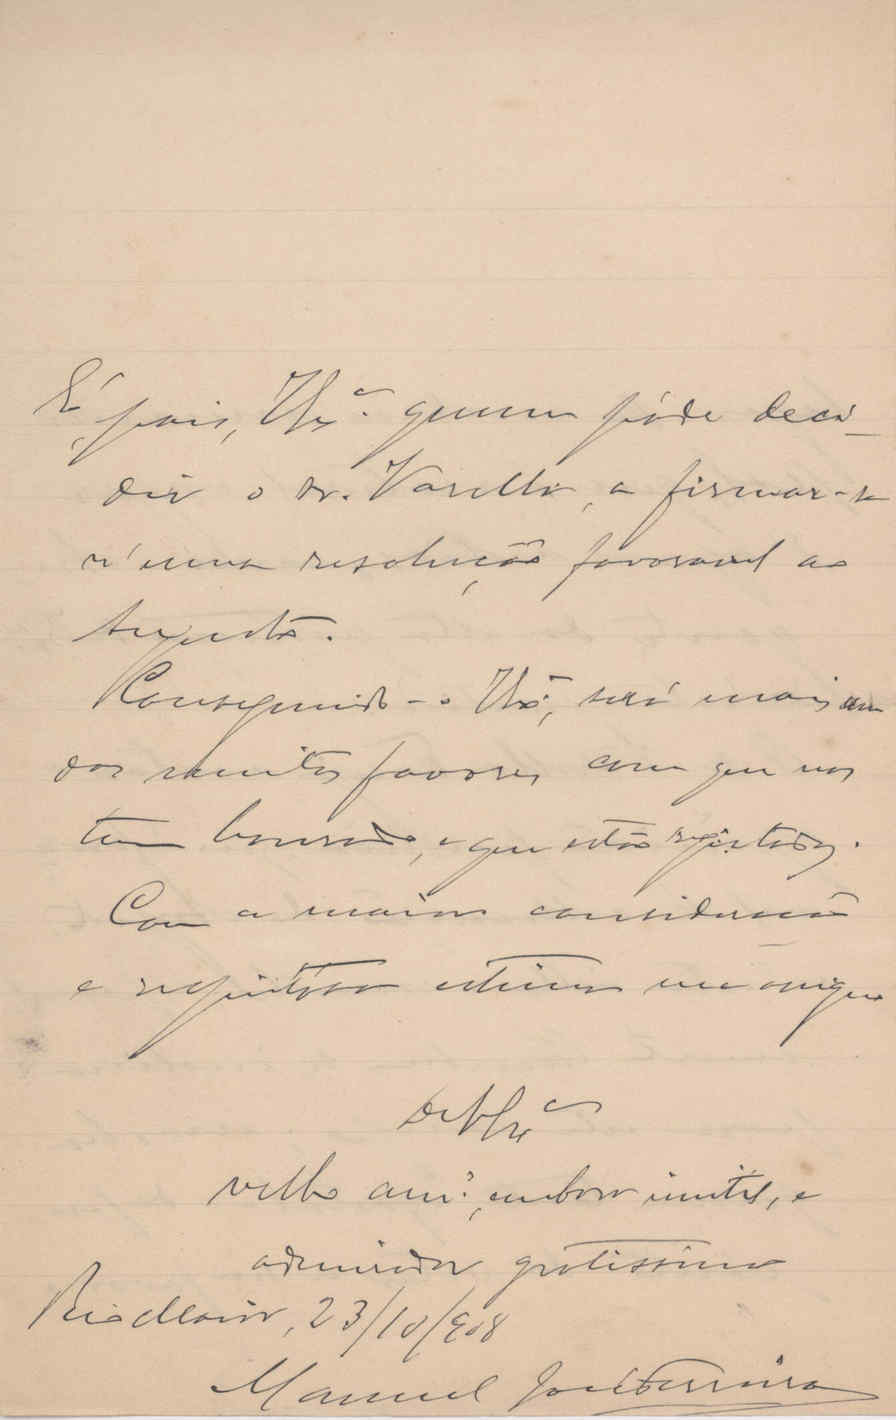 É, pois, V. Exª. quem póde deci-
dir o dr. Varella, a firmar-se
n'uma resolução favoravel ao
supposto.
Conseguindo-o V. Exª., será mais um
dos muitos favores com que nos
tem honrado, e que estão registados.
Com a maior consideração
e respeitosa estima me assigno
De V. Exª
velho amº., embora inutil, e
admirador gratissimo
Rio Maior, 23/10/908
Manuel José Ferreira